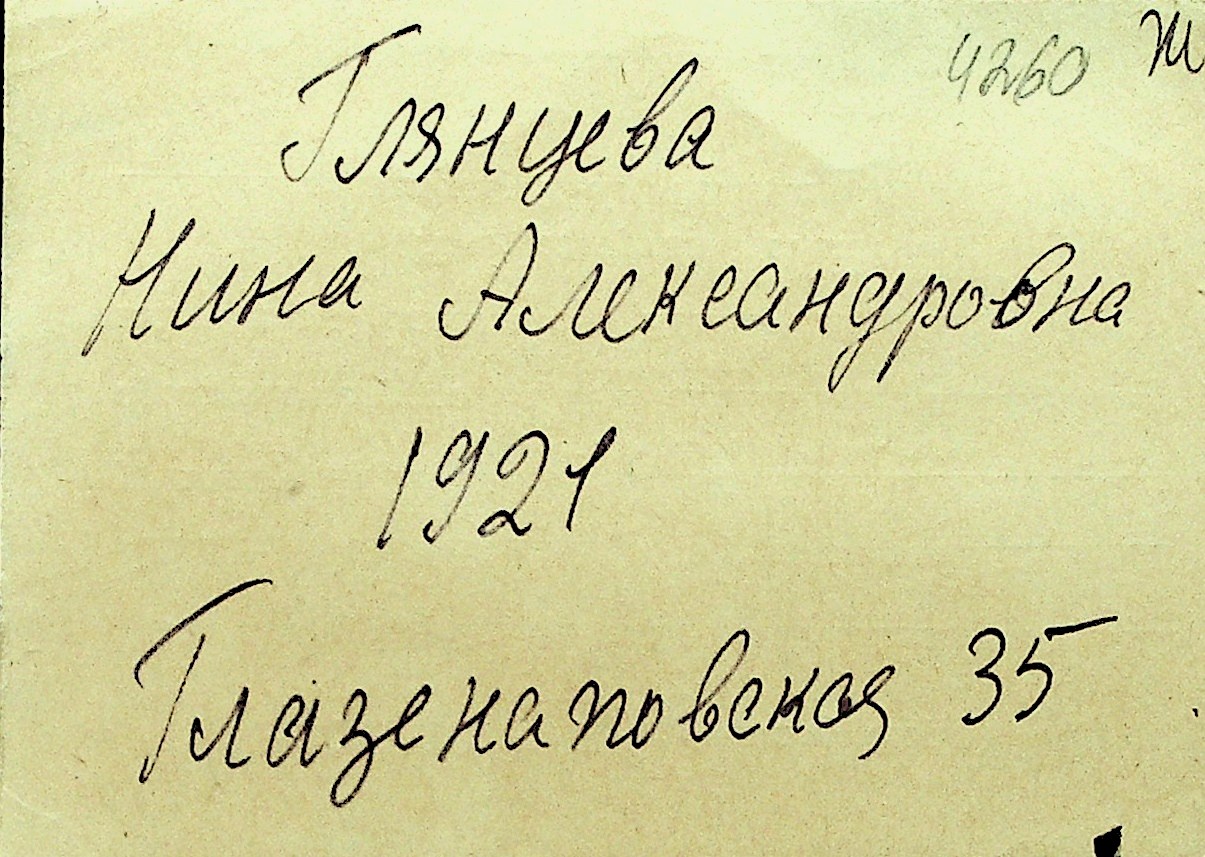 4260 Ж
Глянцева
Нина Александровна
1921
Глазенаповская 35